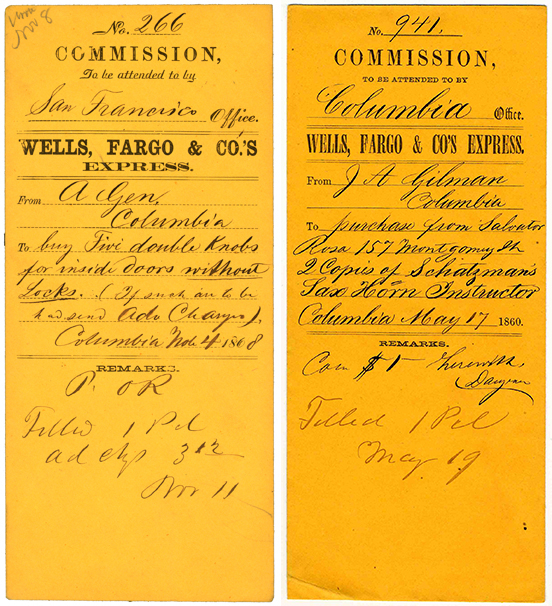 Nov 8
No. 266
COMMISSION,
To be attended to by
San Francisco Office.
WELLS, FARGO & CO.'S
EXPRESS.
From A Gen,
Columbia
To buy Five double Knobs
for inside Doors without
Locks. (If such are to be
had send Adv Charges).
Columbia Nov. 4 1868
REMARKS.
P. OR
Filled 1 Pcl
ad chgs 3
Nov 11
No. 941.
COMMISSION,
TO BE ATTENDED TO BY
Columbia Office.
WELLS, FARGO & CO'S EXPRESS.
From J A Gilman
Columbia
To purchase from Salvator
Rosa 157 Montgomery St
2 Copies of Schatzman's
Sax Horn Instructor
Columbia May 17 1860.
REMARKS.
Coin $1 herewith,
Filled 1 Pcl
May 19